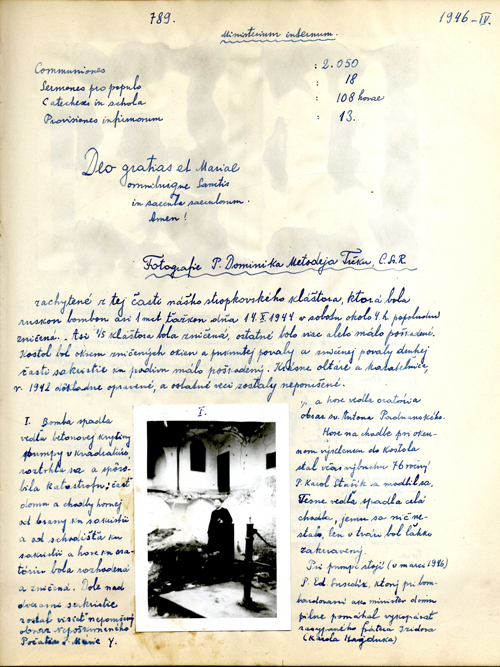 789.
1946-IV.
Ministerium internum.
Communiones : 2.050
Sermones pro populo : 18
Catecheses in schola : 108 horae
Provisiones infirmorum : 13.
Deo gratias et Mariae
omnibusque Sanctis
in saecula saeculorum.
Amen!
Fotografie P. Dominika Metodeja Trčku, C.Ss.R.
zachytené z tej časti nášho stropkovského kláštora, ktorá bola
ruskou bombou asi 1 met. ťažkou dňa 14.X 1944 v sobotu okolo 4 h. popoludní
zničená. Asi 1/5 kláštora bola zničená, ostatné bolo viac alebo málo poškodené.
Kostol bol okrem zničených okien a puknutej povaly a zničenej povaly druhej
časti sakristie ku podivu málo poškodený. Krásne oltáre a kazateľnica,
v r. 1942 dôkladne opravené, a ostatné veci zostaly neporušené.
I. Bomba spadla
vedľa betonovej
pumpy v kvadratúre,
roztrhla sa a spôso-
bila katastrofu; časť
domu a chodby hornej
od brany ku sakristii
a od schodišťa ku
sakristii a hore ku ora-
tóriu bola rozhodená
a zničená. Dole nad
dverami sakristie
zostal visieť neporušený
obraz Nepoškvrneného
Počatia P. Márie
I.
a hore vedľa oratória
obraz sv. Antona Paduánskeho.
Hore na chodbe pri oken-
nom výzkleniu do kostola
stal včas výbuchu 76 ročný
P. Karol Stašik a modlil sa.
Tesne vedľa spadla celá
chodba, jemu sa nič ne-
stalo, len v tvári bol ľahko
zakrvavený.
Pri pumpe stojí (v marci 1946)
P. Ed. , ktorý pri bom-
bardovaní ako minister domu
pilne pomáhal vykopávať
zasypaného frátera Izidora
(Karola Hajduka)